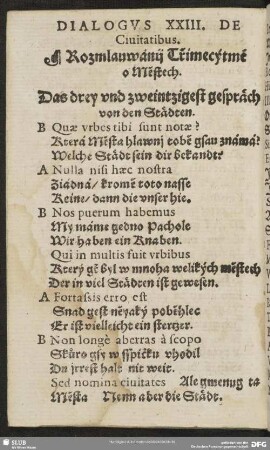 DIALOGVS XXIII. DE
Ciuitatibus.
¶ Rozmlauwánij Třimecýtmé
o Městech.
Das drey vnd zweintzigest gespräch
von den Städten.
B Quæ vrbes tibi sunt notæ?
Která Města hlawnj tobě gsau známá?
Welche Städt sein dir bekandt?
A Nulla nisi hæc nostra
Žiádná / kromě toto nasse
Keine / dann die vnser hie.
B Nos puerum habemus
My máme gedno Pachole
Wir haben ein Knaben.
Qui in multis fuit vrbibus
Který gč byl w mnoha welikých městech
Der in viel Städten ist gewesen.
A Fortassis erro est
Snad gest něyaký poběhlec
Er ist vielleicht ein stertzer.
B Non longè aberras à scopo
Skůro gsy w sspičku vhodil
Du jrrest halt nit weit.
Sed nomina ciuitates Ale gmenug ta
Města Nenn aber die Städt.
SLUB
DFG